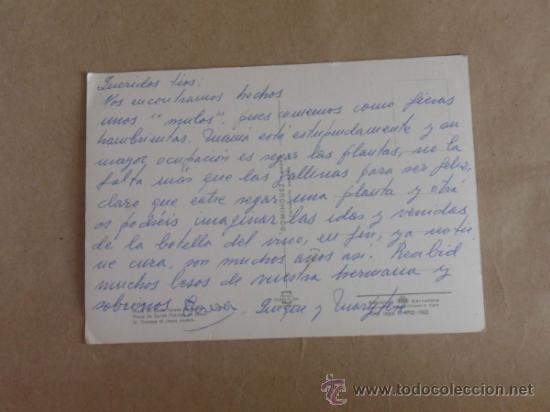 Queridos tíos:
Nos encontramos hechos
unos "mulos", pues comemos como fieras
hambrientas. Mamá está estupendamente y su
mayor ocupación es regar las plantas, no la
falta más que las gallinas para ser feliz,
claro que entre regar una planta y otra
os podéis imaginar las idas y venidas
de la botella del vino, en fin, ya no tie
ne cura, son muchos años así. Recibid
muchos besos de vuestra hermana y
sobrinos
Quique y
DOMINGUEZ
Barcelona
todocoleccion
www.todocoleccion.net